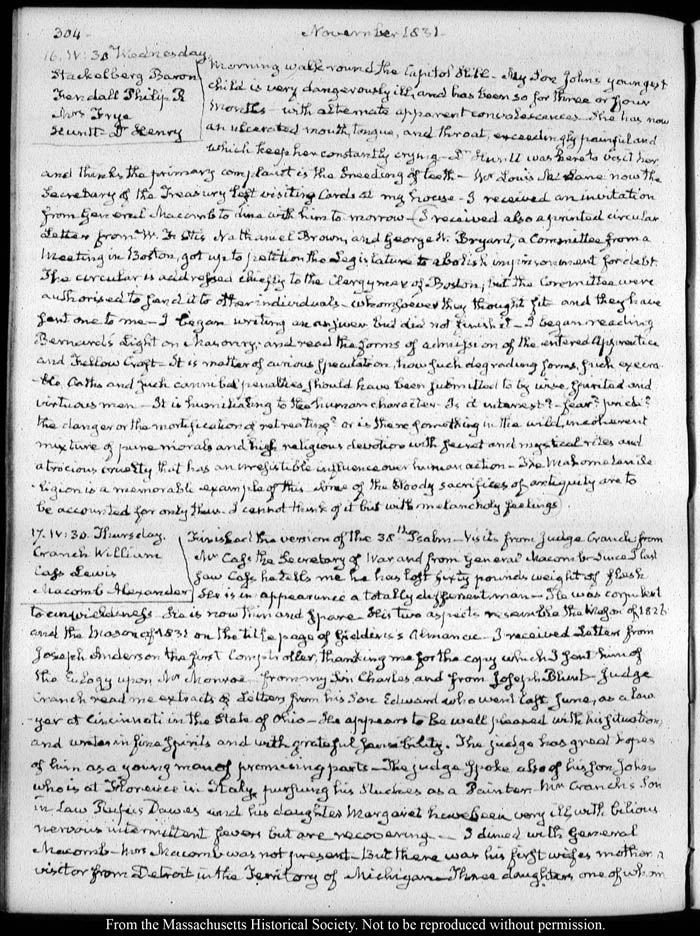 304.
November 1831.
16. IV:30. Wednesday
Stackelberg Baron
Kendall Philip R
Mrs Frye
Huntt. Dr Henry
Morning walk round the Capitol Hill. My Son John's youngest
child is very dangerously ill, and has been so for three or four
Months— with alternate apparent convalescences. She has now
an ulcerated mouth, tongue, and throat, exceedingly painful and
which keep her constantly crying— Dr Huntt was here to visit her
and thinks the primary complaint is the breeding of teeth— Mr Louis McLane now the
Secretary of the Treasury left visiting Cards at my house— I received an invitation
from General Macomb to dine with him to-morrow— I received also a printed circular
Letter from W. F. Otis Nathaniel Brown, and George W. Bryant, a Committee from a
Meeting in Boston, got up to petition the Legislature to abolish imprisonment for debt.
The circular is addressed chiefly to the Clergymen of Boston; but the Committee were
authorised to send it to other individuals— whomsoever they thought fit and they have
sent one to me— I began writing an answer but did not finish it— I began reading
Bernard's Light on Masonry; and read the forms of admission of the entered Apprentice
and Fellow Craft— It is matter of curious speculation, how such degrading forms, such execra-
-ble Oaths and such cannibal penalties, should have been submitted to by wise, spirited and
virtuous men— It is humiliating to the human character. Is it interest?— fear?
the danger or the mortification of retreating? or is there something in the wild, incoherent
mixture of pure morals and high religious devotion with secret and mystical rites and
atrocious cruelty that has an irresistible influence over human action— The Mahometan Re
-ligion is a memorable example of this. Some of the bloody sacrifices of antiquity are to
be accounted for only thus. I cannot think of it but with melancholy feelings.
17. IV:30. Thursday.
Cranch William
Cass Lewis
Macomb Alexander
Finished the version of the 38th Psalm— Visits from Judge Cranch, from
Mr Cass the Secretary of War and from General Macomb. Since I last
saw Cass he tells me he has lost sixty pounds weight of flesh
He is in appearance a totally different man— He was corpulent
to unwieldiness. He is now thin and spare. His two aspects resemble the Mason of 1826
and the Mason of 1831 on the title page of Giddins's Almanac— I received Letters from
Joseph Anderson the first Comptroller, thanking me for the copy which I sent him of
the Eulogy upon Mr Monroe— from my Son Charles, and from Joseph Blunt— Judge
Cranch read me extracts of Letters from his Son Edward who went last June, as a Law
-yer at Cincinnati in the State of Ohio— He appears to be well pleased with his situation,
and writes in fine spirits and with grateful sensibility. The judge has great hopes
of him as a young man of promising parts— The judge spoke also of his son John
who is at Florence in Italy, pursuing his studies as a Painter. Mr Cranch's Son
in Law Rufus Dawes and his daughter Margaret have been very ill, with bilious
nervous intermittent fevers but are recovering— I dined with General
Macomb— Mrs Macomb was not present— But there was his first wife's mother, a
visitor from Detroit in the Territory of Michigan— Three daughters, one of whom
From the Massachusetts Historical Society. Not to be reproduced without permission.